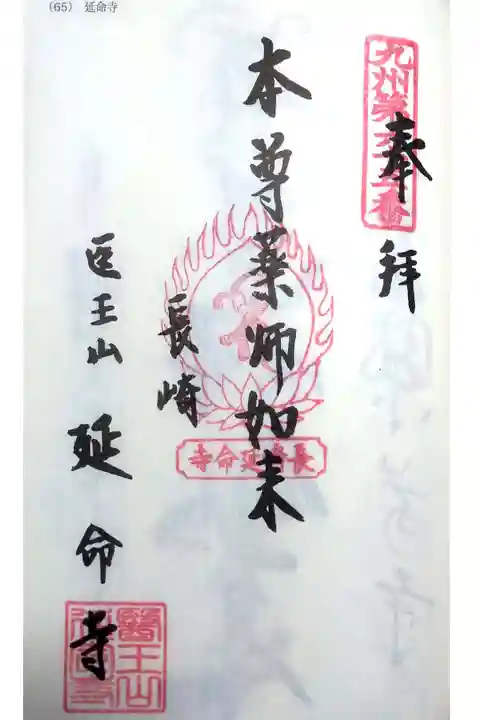 (65) 延命寺
九州第六十五番
奉拝
本尊薬師如来
長崎
長崎延命寺
医王山 延命寺
醫王山